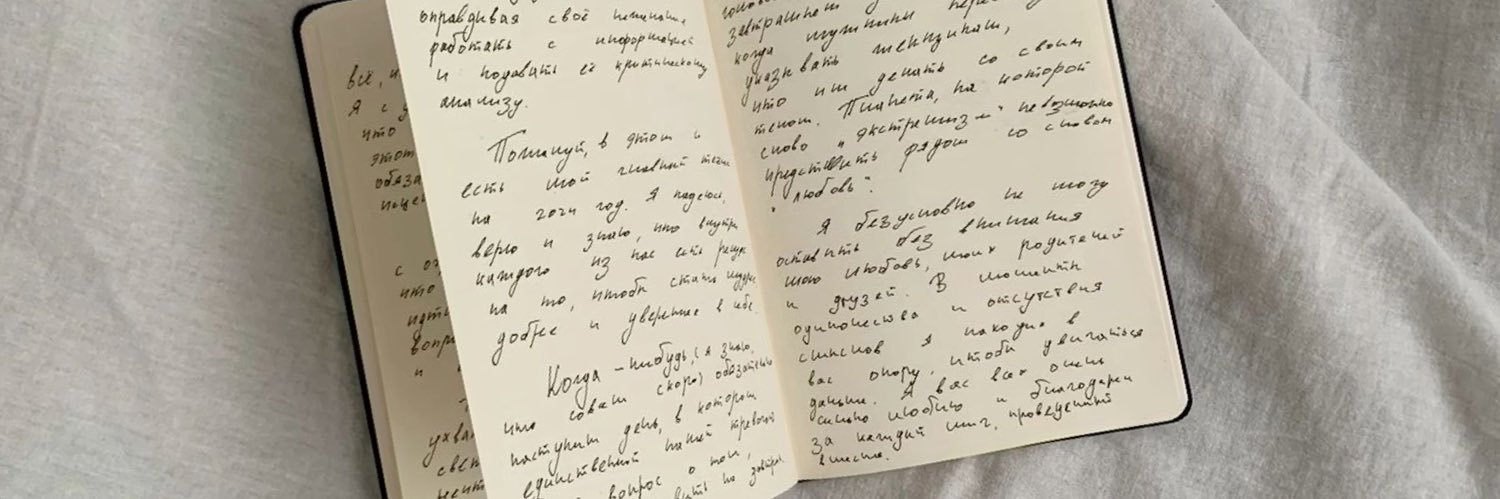 всё, и
Я с у
что
этот
обяза
с ог
что
идти
вопр
и
ухва
свет
оправдывая своё нежелание
работать с информацией
и подавать её критическому
анализу.
Пожалуй, в этом и
есть мой главный
на 2024 год. Я надеюсь,
верю и знаю, что внутри
каждого из нас есть ресурс
на то, чтобы стать мудрее
добрее и увереннее в себе.
Когда-нибудь (я знаю,
что совсем скоро) обязательно
наступит день, в котором
единственной нашей тревогой
вопрос о том,
на завтрак
завтрашнем
когда мужчины
указывать женщинам,
что им делать со своим
телом. Планета, на которой
слово "экстремизм" невозможно
представить рядом со словом
"любовь".
Я безусловно не могу
оставить без внимания
мою любовь, моих родителей
и друзей. В моменты
одиночества и отсутствия
смыслов я находил в
вас опору, чтобы двигаться
дальше. Я вас всех очень
сильно люблю и благодарен
за каждый миг, проведенный
вместе.